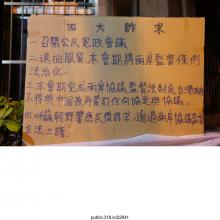 四大訴求
一.召開公民憲政會議
二.退回服貿.本會期將兩岸監督條例
法治化.
三.本會期完成兩岸協議監督法制前.台灣政府
不得與中國政府簽訂任何協定與協議.
四.呼籲朝野響應民間訴求.通過兩岸協議監督
立法之議.
public.318.io/22941